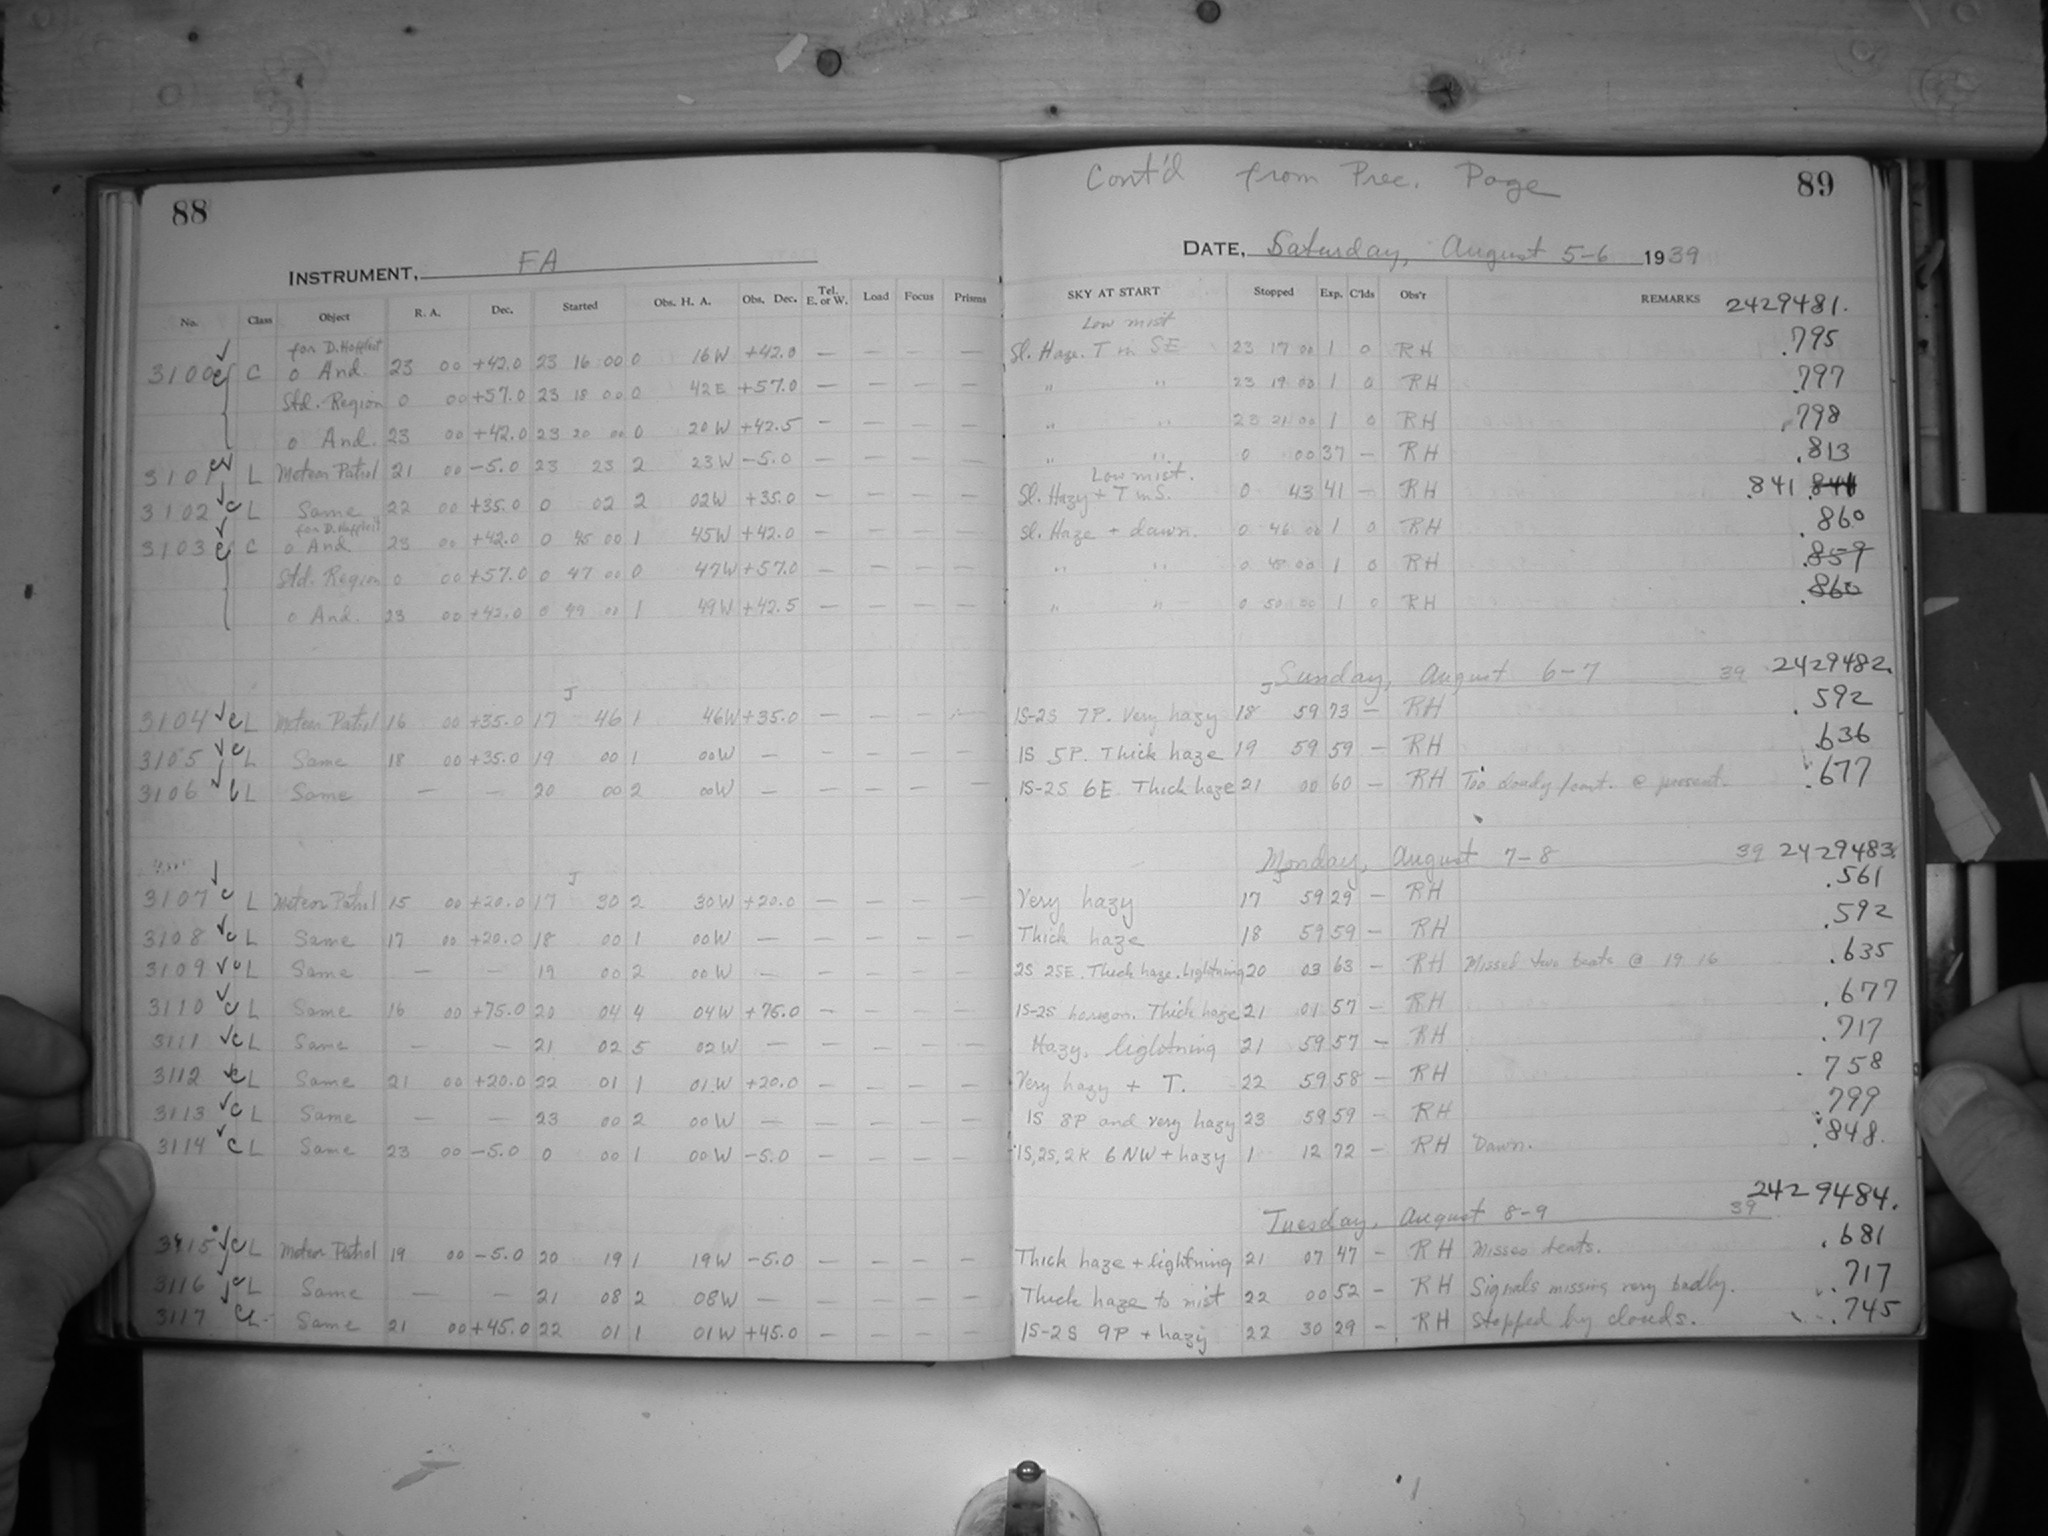 88
INSTRUMENT, FA
No. Class Object R. A. Dec. Started Obs. H. A. Obs. Dec. Tel. E. or W. Load Focus Prisms
for D. Hoffleit
3100 C o And. 23 00 +42.0 23 16 00 0 16W +42.0 — — — —
Std. Region 0 00 +57.0 23 18 00 0 42E +57.0 — — — —
o And. 23 00 +42.0 23 20 00 0 20W +42.5 — — — —
3101 L Meteor Patrol 21 00 -5.0 23 23 2 23W -5.0 — — — —
3102 c L Same 22 00 +35.0 0 02 2 02W +35.0 — — — —
for D. Hoffleit
3103 c C o And. 23 00 +42.0 0 45 00 1 45W +42.0 — — — —
Std. Region 0 00 +57.0 0 47 00 0 47W +57.0 — — — —
o And. 23 00 +42.0 0 49 00 1 49W +42.5 — — — —
J
3104 c L Meteor Patrol 16 00 +35.0 17 46 1 46W +35.0 — — — —
3105 c L Same 18 00 +35.0 19 00 1 00W — — — — —
3106 c L Same — — 20 00 2 00W — —
J
3107 c L Meteor Patrol 15 00 +20.0 17 30 2 30W +20.0 — — — —
3108 c L Same 17 00 +20.0 18 00 1 00W — — — — —
3109 c L Same — — 19 00 2 00W — — — — —
3110 c L Same 16 00 +75.0 20 04 4 04W +75.0 — — — —
3111 c L Same — — 21 02 5 02W — — — — —
3112 c L Same 21 00 +20.0 22 01 1 01W +20.0 — — — —
3113 c L Same — — 23 00 2 00W — — — — —
3114 c L Same 23 00 -5.0 0 00 1 00W -5.0 — — — —
3115 c L Meteor Patrol 19 00 -5.0 20 19 1 19W -5.0 — — — —
3116 c L Same — — 21 08 2 08W — — — — —
3117 c L Same 21 00 +45.0 22 01 1 01W +45.0 — — — —
Cont'd from Prec. Page
89
DATE, Saturday, August 5-6 1939
SKY AT START Stopped Exp. C'lds Obs'r REMARKS 2429481.
Low mist
Sl. Haze. T in SE 23 17 00 1 0 RH .795
" " 23 19 00 1 0 RH .797
" " 23 21 00 1 0 RH .798
" " 0 00 37 — RH .813
Low mist.
Sl. Hazy + T in S. 0 43 41 — RH .841 .841
Sl. Haze + dawn. 0 46 00 1 0 RH .860
" " 0 48 00 1 0 RH .859
" " 0 50 00 1 0 RH .860
J Sunday, August 6-7 39 2429482.
1S-2S 7P. Very hazy 18 59 73 — RH .592
1S 5P. Thick haze 19 59 59 — RH .636
1S-2S 6E. Thick haze 21 00 60 — RH Too cloudy /cont. @ present. .677
Monday, August 7-8 39 2429483.
J
Very hazy 17 59 29 — RH .561
Thick haze 18 59 59 — RH .592
2S 2SE. Thick haze. Lightning 20 03 63 — RH Missed two beats @ 19 16 .635
1S-2S horizon. Thick haze 21 01 57 — RH .677
Hazy, lightning 21 59 57 — RH .717
Very hazy + T. 22 59 58 — RH .758
1S 8P and very hazy 23 59 59 — RH .799
1S, 2S, 2K 6NW + hazy 1 12 72 — RH Dawn. .848
Tuesday, August 8-9 39 2429484.
Thick haze + lightning 21 07 47 — RH Misses beats. .681
Thick haze to mist 22 00 52 — RH Signals missing very badly. .717
1S-2S 9P + hazy 22 30 29 — RH Stopped by clouds. .745